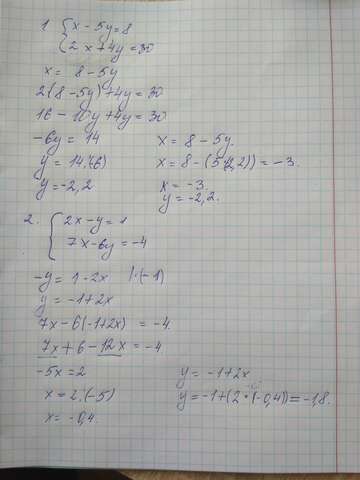 1 { x - 5y = 8
2x + 4y = 30
x = 8 - 5y
2(8 - 5y) + 4y = 30
16 - 10y + 4y = 30
-6y = 14
y = 14:(-6)
y = -2,2
x = 8 - 5y.
x = 8 - (5·(-2,2)) = -3.
x = -3.
y = -2,2.
2. { 2x - y = 1
7x - 6y = -4
-y = 1 - 2x |·(-1)
y = -1 + 2x
7x - 6(-1 + 2x) = -4
7x + 6 - 12x = -4
-5x = 2
x = 2:(-5)
x = -0,4.
y = -1 + 2x
y = -1 + (2·(-0,4)) = -1,8.